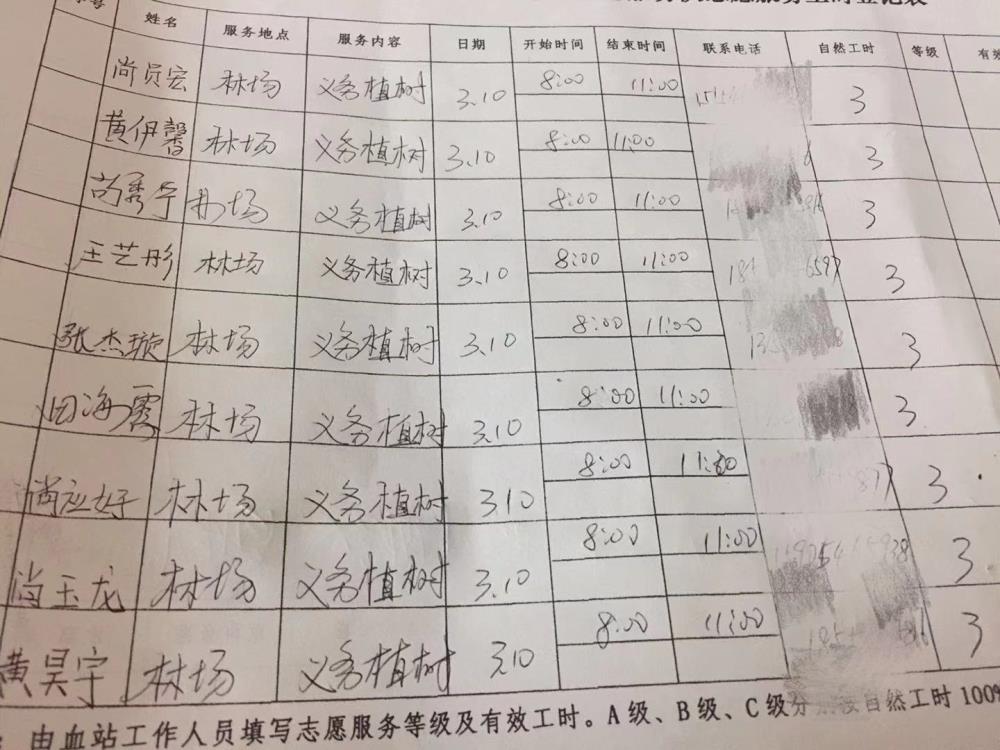 服务工时登记表
号 姓名 服务地点 服务内容 日期 开始时间 结束时间 联系电话 自然工时 等级 有效
尚员宏 林场 义务植树 3.10 8:00 11:00 3
黄伊馨 林场 义务植树 3.10 8:00 11:00 3
尚秀宁 林场 义务植树 3.10 8:00 11:00 3
王艺彤 林场 义务植树 3.10 8:00 11:00 3
张杰璇 林场 义务植树 3.10 8:00 11:00 3
田海霞 林场 义务植树 3.10 8:00 11:00 3
尚应好 林场 义务植树 3.10 8:00 11:00 3
尚玉龙 林场 义务植树 3.10 8:00 11:00 3
黄昊宇 林场 义务植树 3.10 8:00 11:00 3
:由血站工作人员填写志愿服务等级及有效工时。A级、B级、C级分别按自然工时100%